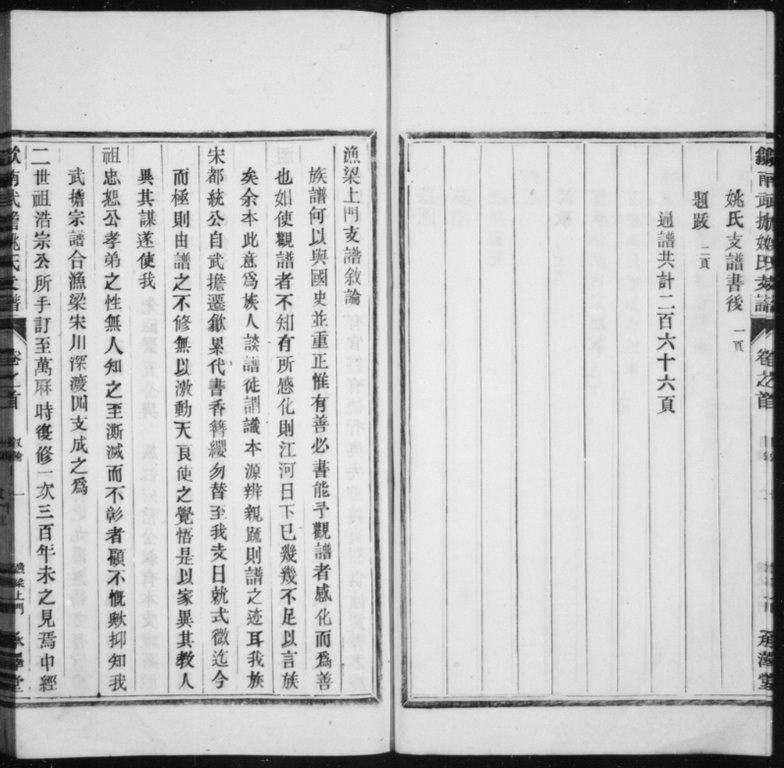 歙南武擔姚氏支譜
卷之首
承澤堂
姚氏支譜書後 一頁
題跋 二頁
通譜共計二百六十六頁
漁梁上門支譜敘論
族譜何以與國史並重正惟有善必書能予觀譜者感化而為善
也如使觀譜者不知有所感化則江河日下已幾幾不足以言族
矣余本此意爲族人談譜徒謂識本源辨親疏則譜之迹耳我族
宋都統公自武擔遷歙累代書香簪纓勿替至我支日就式微迄今
而極則由譜之不修無以激動天良使之覺悟是以家異其教人
異其謀遂使我
祖忠愻公孝弟之性無人知之至澌滅而不彰者顧不慨歟抑知我
武擔宗譜合漁梁宋川深渡四支成之爲
二世祖浩宗公所手訂至萬厤時復修一次三百年未之見焉中經
歙南武擔姚氏支譜
卷之首
敘論
一
漁梁上門
承澤堂